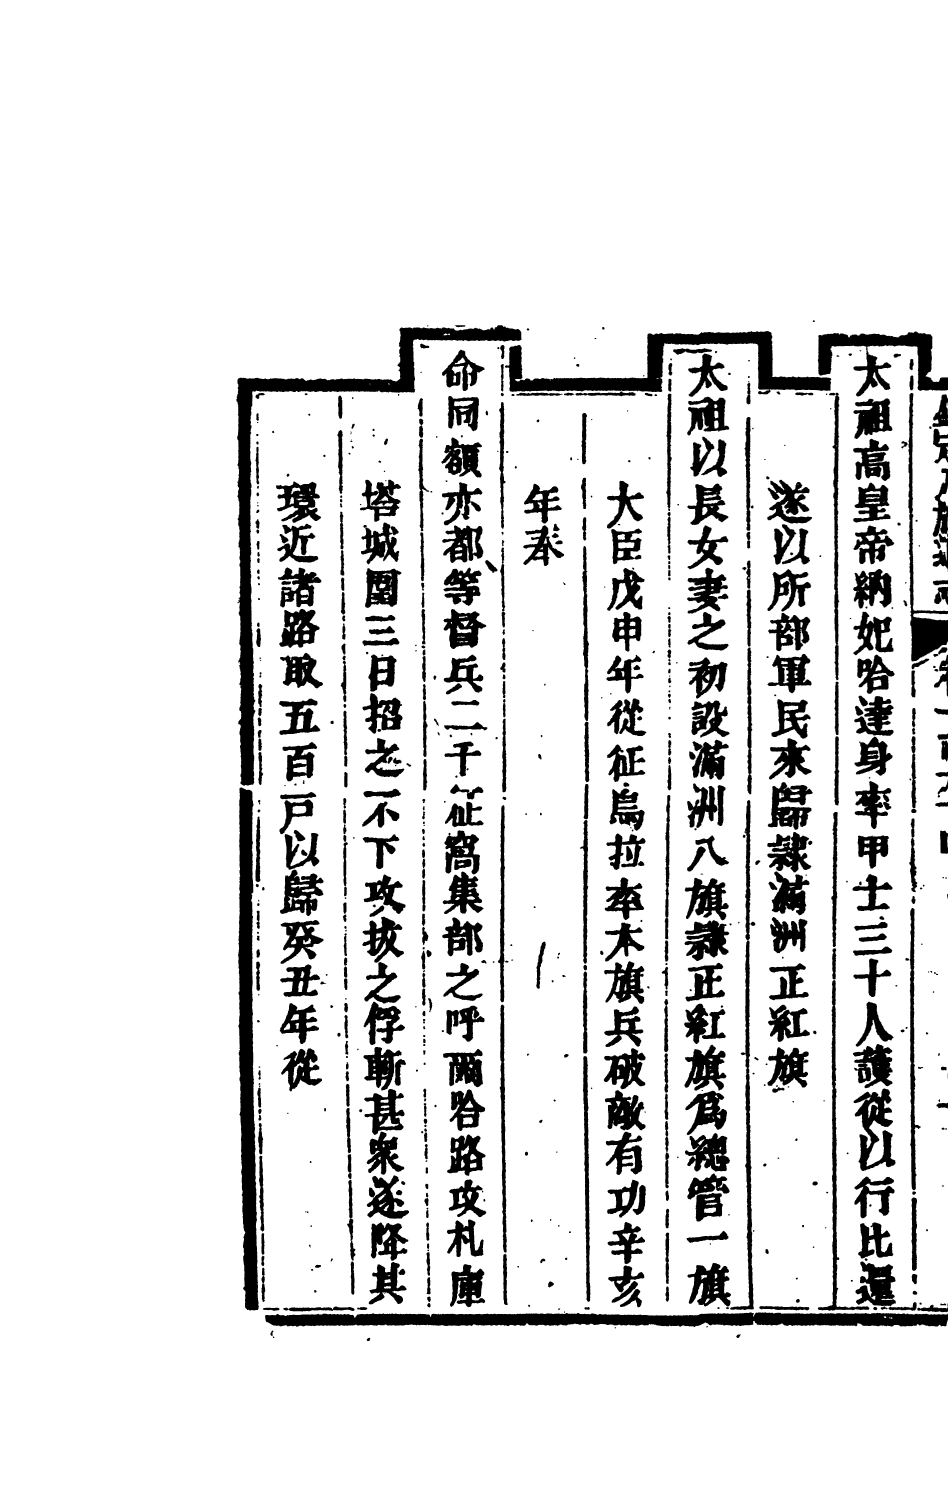 太祖高皇帝納妃哈達身率甲士三十人護從以行比還
遂以所部軍民來歸隸滿洲正紅旗
太祖以長女妻之初設滿洲八旗隸正紅旗爲總管一旗
大臣戊申年從征烏拉率本旗兵破敵有功辛亥
年春
命同額亦都等督兵二千征窩集部之呼爾哈路攻札庫
塔城圍三日招之不下攻拔之俘斬甚衆遂降其
環近諸路取五百戸以歸癸丑年從